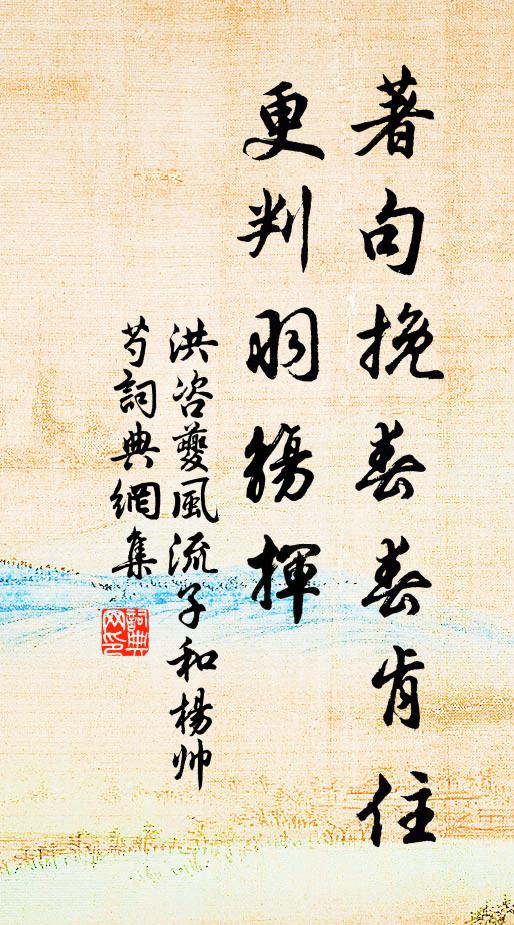 著句挽春春肯住
更判羽觴揮
洪咨夔風流子和楊帅
芍詞典網集
詞典網印